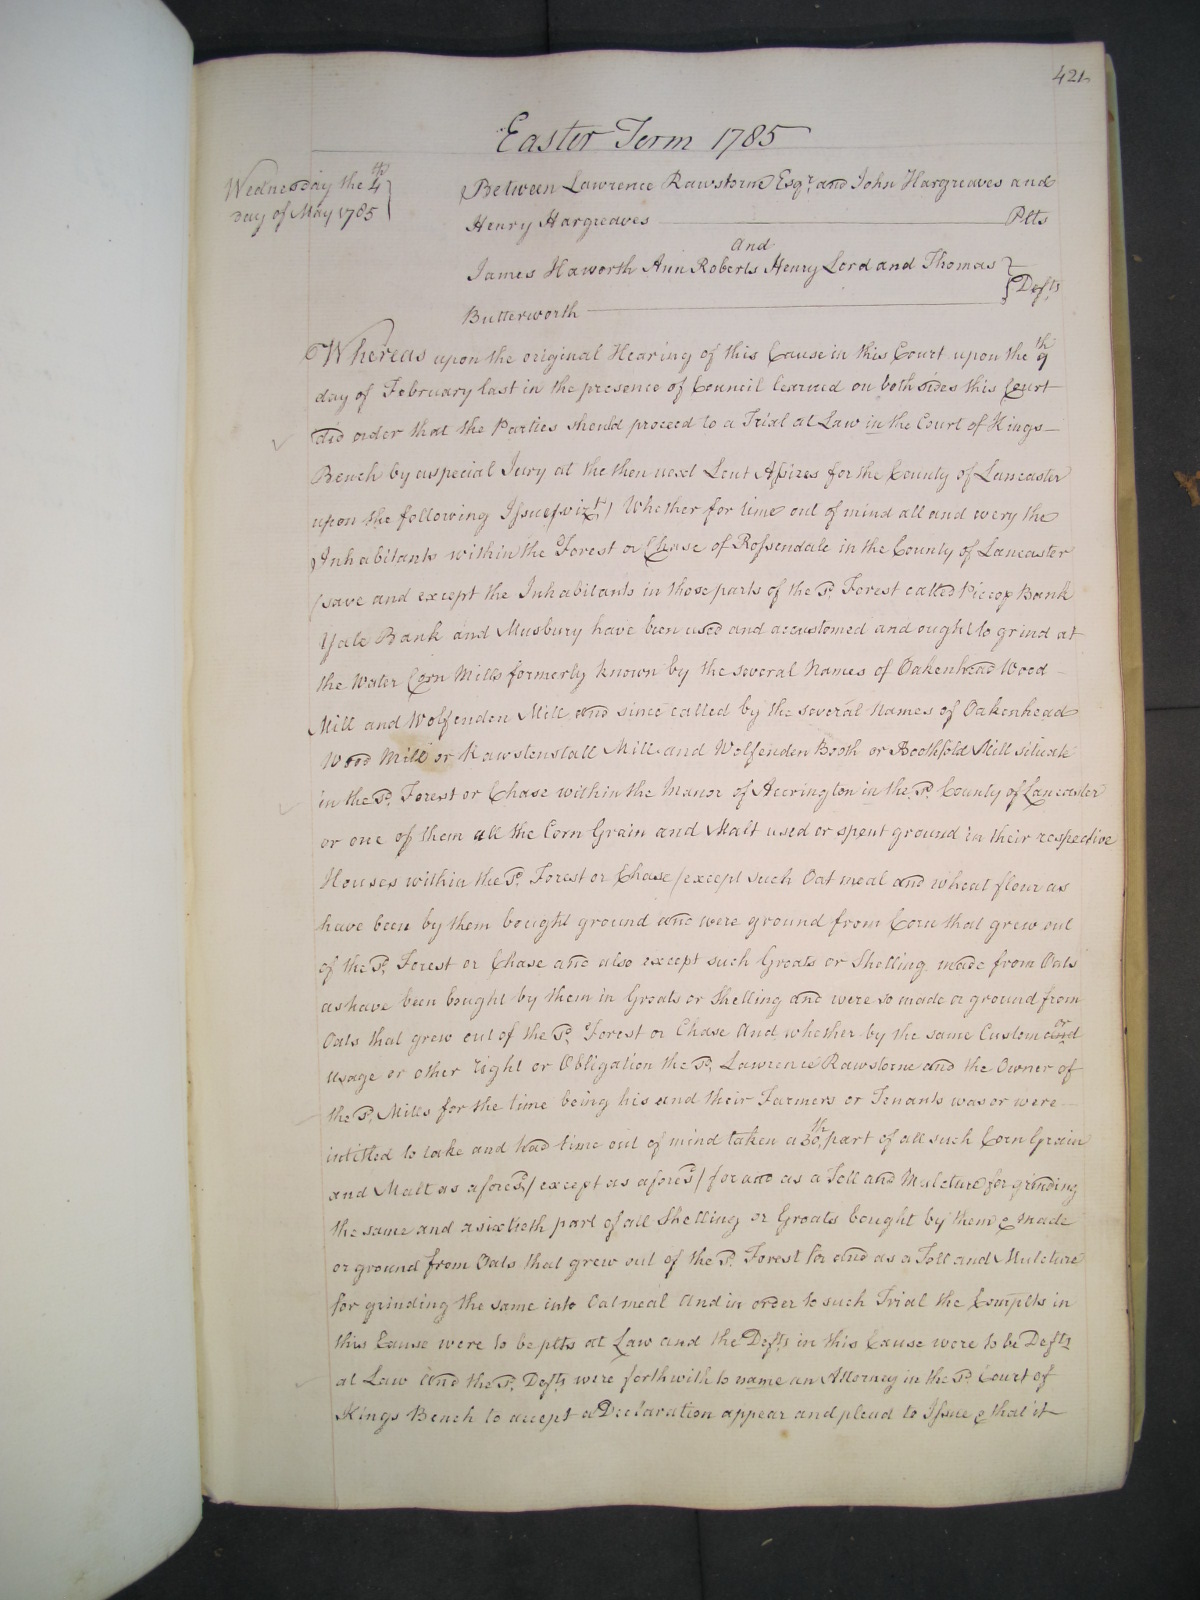 421
Easter Term 1785
Wednesday the 4th
day of May 1785
Between Lawrence Rawstorne Esqr. and John Hargreaves and
Henry Hargreaves Plts
And
James Haworth Ann Roberts Henry Lord and Thomas
Butterworth Defts
Whereas upon the original Hearing of this Cause in this Court upon the 9th
day of February last in the presence of Council learned on both sides this Court
did order that the Parties should proceed to a Trial at Law in the Court of Kings
Bench by a special Jury at the then next Lent Assizes for the County of Lancaster
upon the following Issue (vizt.) Whether for time out of mind all and every the
Inhabitants within the Forest or Chase of Rossendale in the County of Lancaster
(save and except the Inhabitants in those parts of the sd. Forest called Piccop Bank
Yate Bank and Musbury have been used and accustomed and ought to grind at
the Water Corn Mills formerly known by the several Names of Oakenhead Wood
Mill and Wolfenden Mill and since called by the several Names of Oakenhead
Wood Mill or Rawstenstall Mill and Wolfenden Booth or Boothfold Mill situate
in the sd. Forest or Chase within the Manor of Accrington in the sd. County of Lancaster
or one of them all the Corn Grain and Malt used or spent ground in their respective
Houses within the sd. Forest or Chase (except such Oatmeal and wheat flour as
have been by them bought ground and were ground from Corn that grew out
of the sd. Forest or Chase and also except such Groats or Shelling made from Oats
as have been bought by them in Groats or Shelling and were so made or ground from
Oats that grew out of the sd. Forest or Chase And whether by the same Custom and or
usage or other right or Obligation the sd. Lawrence Rawstorne and the Owner of
the sd. Mills for the time being his and their Farmers or Tenants was or were
intitled to take and had time out of mind taken a 30th. part of all such Corn Grain
and Malt as aforesd. (except as aforesd.) for and as a Toll and Mulcture for grinding
the same and a sixtieth part of all Shelling or Groats bought by them & made
or ground from Oats that grew out of the sd. Forest for and as a Toll and Mulcture
for grinding the same into Oatmeal And in order to such Trial the Complts in
this Cause were to be plts at Law and the Defts in this Cause were to be Defts
at Law And the sd. Defts were forthwith to name an Attorney in the sd. Court of
Kings Bench to accept a Declaration appear and plead to Issue & that it